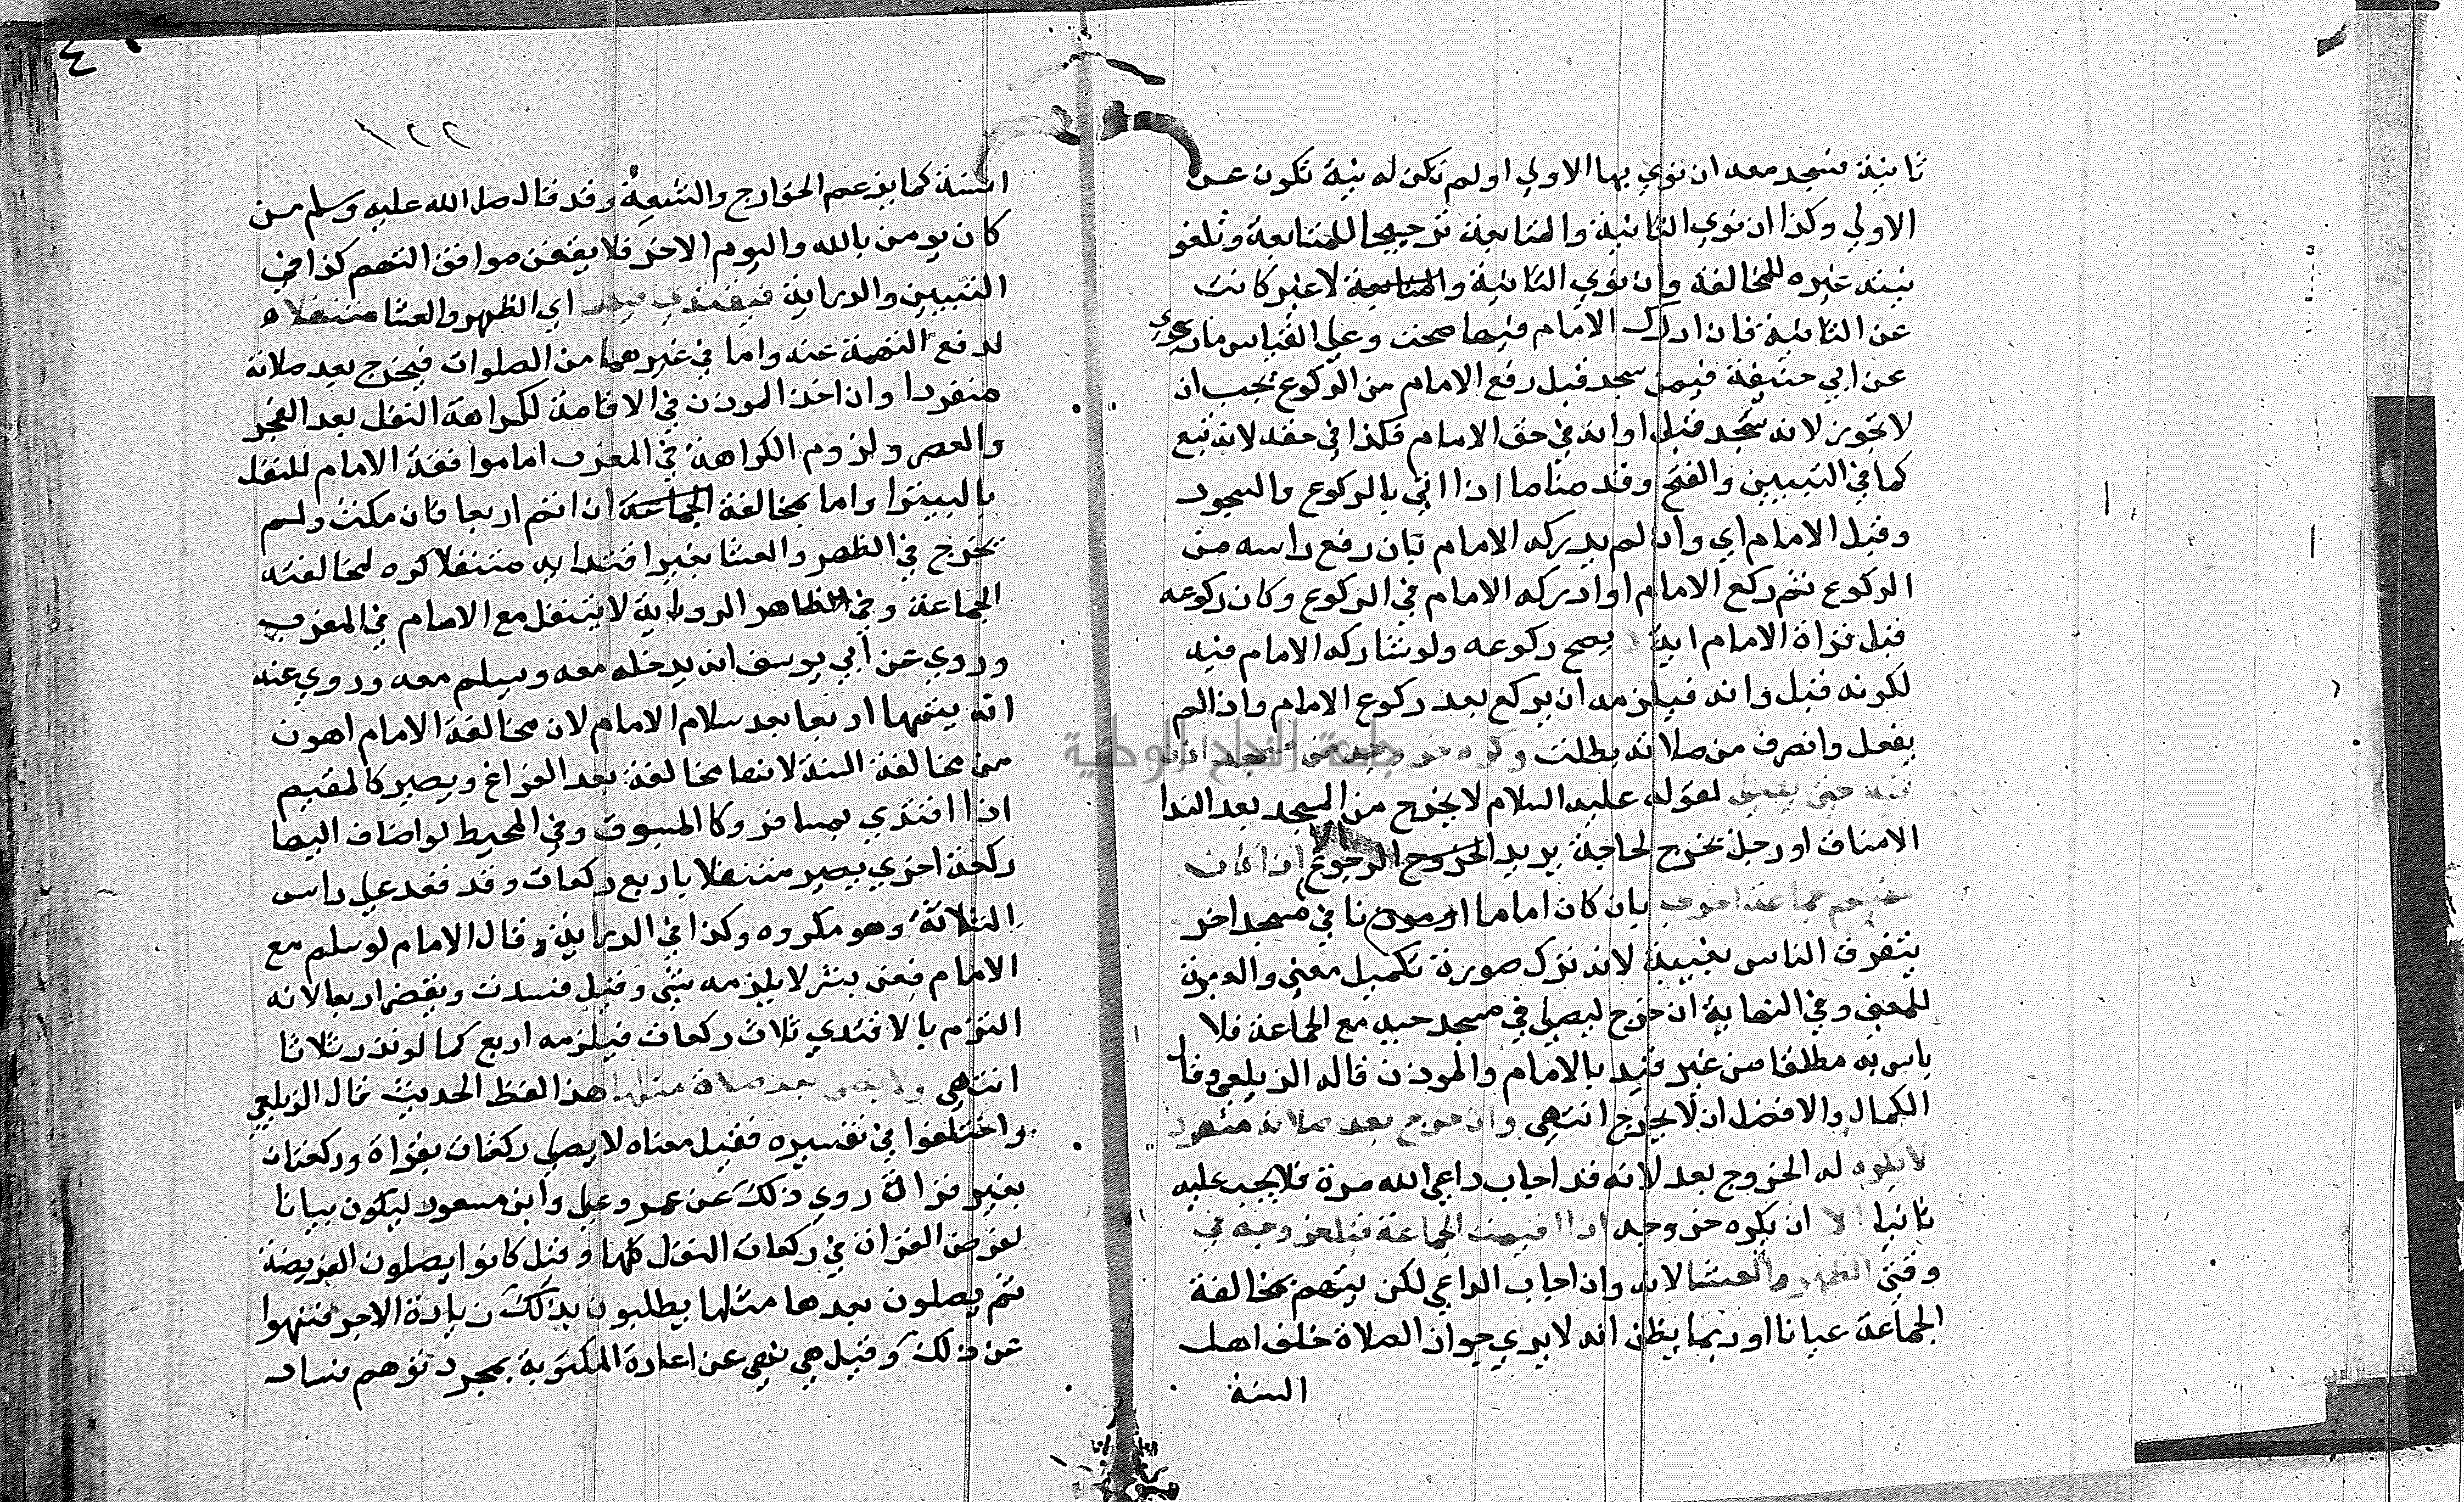 ثانية فسجد معه ان نوي بها الاولي او لم تكن له نية تكون عن
الاولي وكذا ان نوي الثانية والمتابعة ترجيحا للمتابعة وتلغو
نيته غيره للمخالفة وان نوي الثانية والمتابعة لا غير كانت
عن الثانية فان ادرك الامام فيها صحت وعلي القياس ما روي
عن ابي حنيفة فيمن سجد قبل رفع الامام من الركوع يجب ان
لا تجوز لانه سجد قبل اوانه في حق الامام فكذا في حقه لانه تبع
كما في التبيين والفتح وقدمناه اذا اتي بالركوع والسجود
وقبل الامام اي وان لم يدركه الامام بان رفع راسه من
الركوع ثم ركع الامام او ادركه الامام في الركوع وكان ركوعه
قبل قراة الامام اية لا يصح ركوعه ولو شاركه الامام فيه
لكونه قبل وانه فيلزمه ان يركع بعد ركوع الامام واذا لم
يفعل وانصرف من صلاته بطلت وكره خروجه من مسجد اذن
فيه حتي يصلي لقوله عليه السلام لا يخرج من المسجد بعد الندا
الا منافق او رجل يخرج لحاجة يريد الرجوع الا اذا كان
مقيم جماعة اخري بان كان اماما او موذنا في مسجد اخر
يتفرق الناس بغيبته لانه ترك صورة تكميل معني والعبرة
للمعني وفي النهاية ان خرج ليصلي في مسجد حيه مع الجماعة فلا
باس به مطلقا من غير قيد بالامام والموذن قاله الزيلعي وقال
الكمال والافضل ان لا يخرج انتهي وان خرج بعد صلاته منفردا
لا يكره له الخروج بعد لانه قد اجاب داعي الله مرة فلا يجب عليه
ثانيا الا ان يكره خروجه اذا اقيمت الجماعة قبل خروجه في
وقتي الظهر والعشا لانه وان اجاب الداعي لكن يتهم بمخالفة
الجماعة عيانا او ربما يظن انه لا يري جواز الصلاة خلف اهل
السنة
١٢٢
السنة كما يزعم الخوارج والشيعة وقد قال صلي الله عليه وسلم من
كان يومن بالله واليوم الاخر فلا يقفن مواقف التهم كذا في
التبيين والدراية فيقتدي فيهما اي الظهر والعشا متنفلا
لدفع التهمة عنه واما في غيرهما من الصلوات فيخرج بعد صلاته
منفردا وان اخذ الموذن في الاقامة لكراهة النفل بعد الفجر
والعصر ولزوم الكراهة في المغرب اما موافقة الامام للنفل
بالبتيرا واما بمخالفة الجماعة ان اتم اربعا فان مكث ولم
يخرج في الظهر والعشا بغير اقتدا به متنفلا كره لمخالفته
الجماعة وفي الظاهر الرواية لا يتنفل مع الامام في المغرب
وروي عن ابي يوسف انه يدخل معه ويسلم معه وروي عنه
انه يتمها اربعا بعد سلام الامام لان مخالفة الامام اهون
من مخالفة السنة لانها مخالفة بعد الفراغ ويصير كالمقيم
اذا اقتدي بمسافر وكالمسبوق وفي المحيط لو اضاف اليها
ركعة اخري يصير متنفلا باربع ركعات وقد قعد علي راس
الثلاثة وهو مكروه وكذا في الدراية وقال الامام لو سلم مع
الامام فعن بشر لا يلزمه شي وقيل فسدت ويقضي اربعا لانه
التزم بالاقتدي ثلاث ركعات فيلزمه اربع كما لو نذر ثلاثا
انتهي ولا يصلي بعد صلاة مثلها هذا لفظ الحديث قال الزيلعي
واختلفوا في تفسيره فقيل معناه لا يصلي ركعتان بقراة وركعتان
بغير قراة روي ذلك عن عمر وعلي وابن مسعود ليكون بيانا
لفرض القران في ركعات النفل كلها وقيل كانوا يصلون الفريضة
ثم يصلون بعدها مثلها يطلبون بذلك زيادة الاجر فنهوا
عن ذلك وقيل هي نهي عن اعادة المكتوبة بمجرد توهم فساد
جامعة النجاح الوطنية